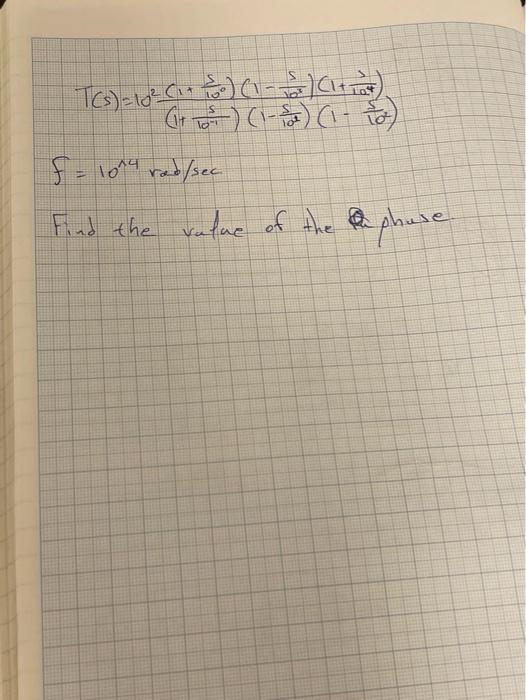 T(s)=10² (1+ s/10⁰)(1- s/10³)(1+ s/10⁴)
(1+ s/10⁻¹)(1- s/10²)(1- s/10²)
f = 10^4 rad/sec
Find the value of the phase.